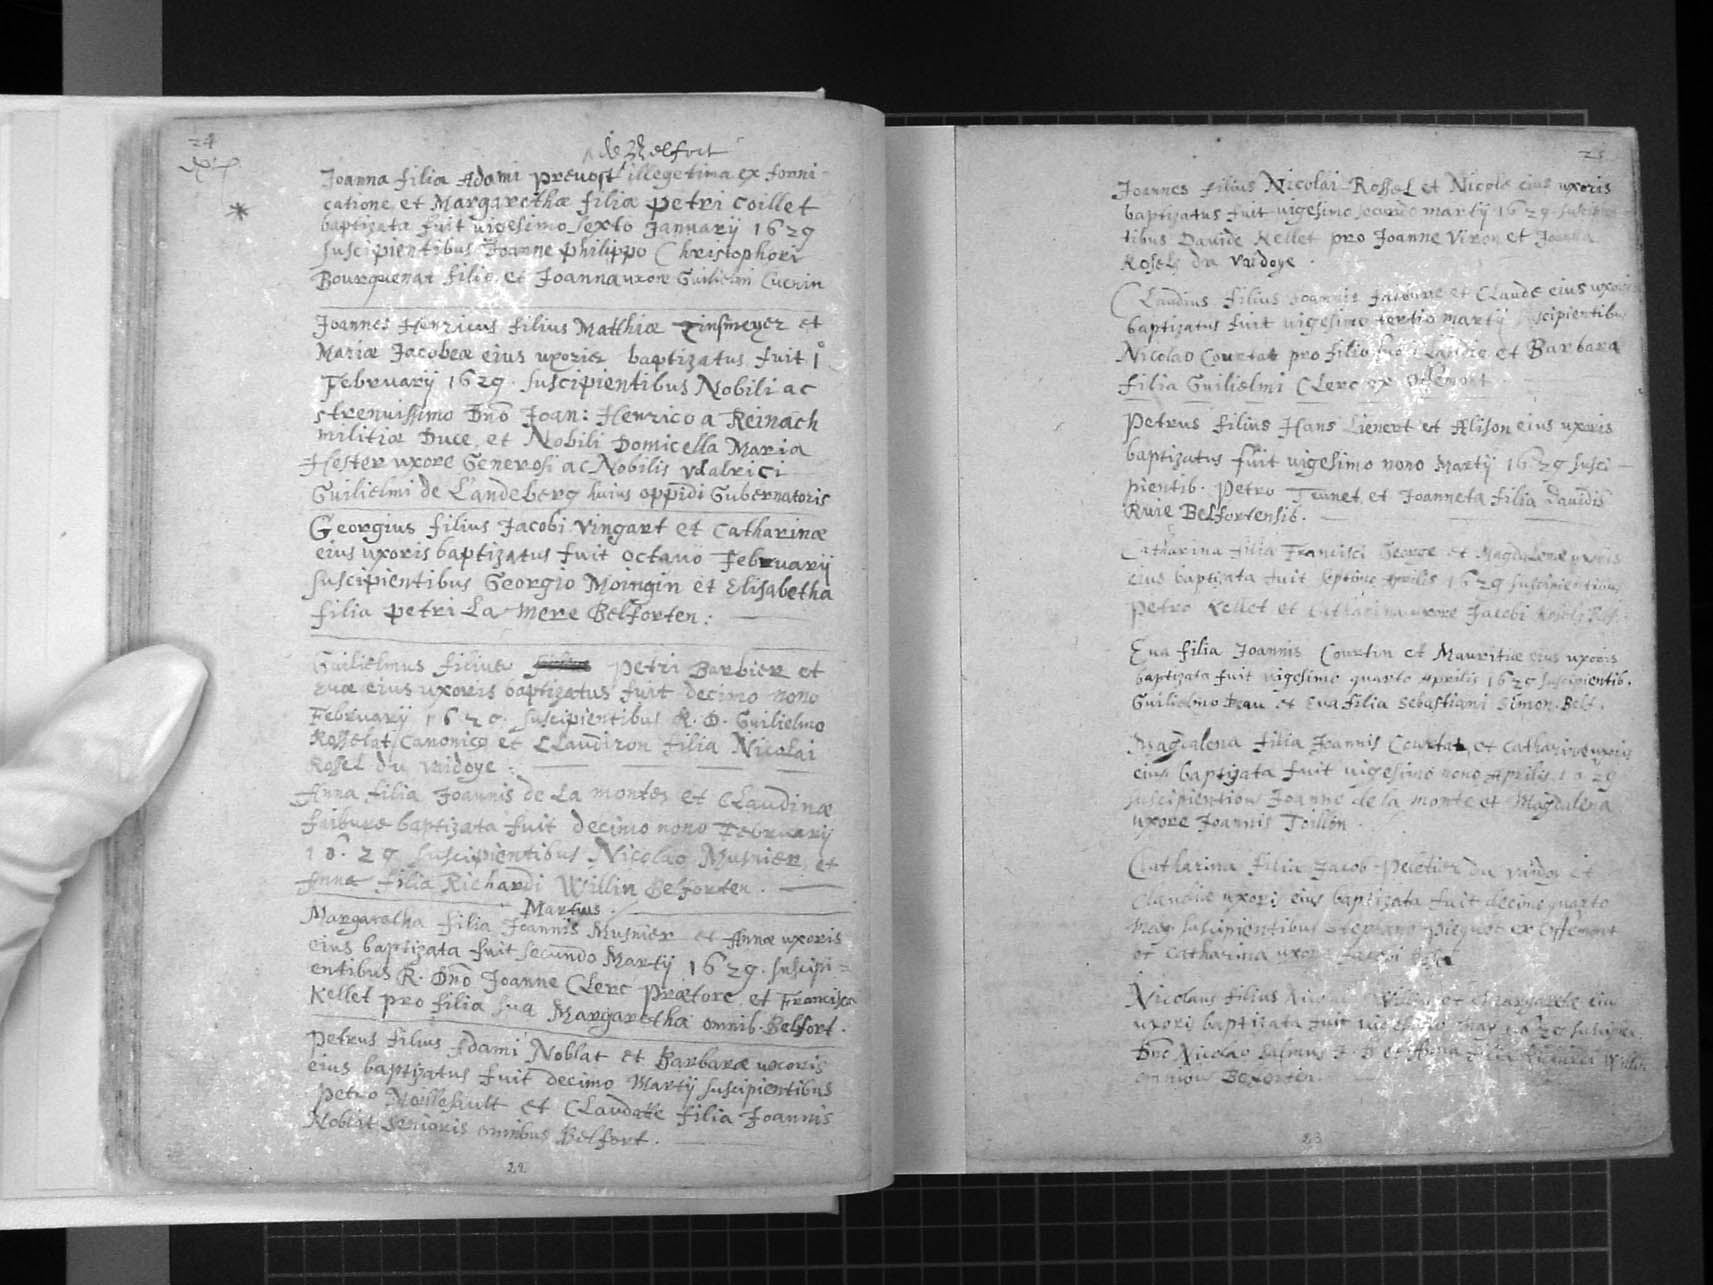 24
de Belfort
Joanna filia Adami prevost illegetima ex forni-
catione et Margarethæ filia petri coillet
baptizata fuit vigesimo sexto January 1629
suscipientibus Joanne philippo Christophori
Bourquenat filio et Joanna uxore Guilielmi Cuenin
Joannes Henricus filius Matthiæ Zinsmeyer et
Mariæ Jacobeæ eius uxoris baptizatus fuit 1°
February 1629. suscipientibus Nobili ac
strenuissimo Dno Joan: Henrico a Reinach
militiæ Duce, et Nobili Domicella Maria
Hester uxore Generosi ac Nobilis vdalrici
Guilielmi de Landeberg huius oppidi Gubernatoris
Georgius filius Jacobi vingart et Catharinæ
eius uxoris baptizatus fuit octavo February
suscipientibus Georgio Moingin et Elisabetha
filia petri La mere Belforten:
Guilielmus filius petri Barbier et
evæ eius uxoris baptizatus fuit decimo nono
February 1629. suscipientibus R. D. Guilielmo
Rosselat Canonico et CLaudiron filia Nicolai
Rossel du vaidoye
Anna filia Joannis de La montes et CLaudinæ
faibure baptizata fuit decimo nono February
1629 suscipientibus Nicolao Musnier et
Anna filia Richardi Willin Belforten.
Martius.
Margaratha filia Joannis Musnier et Annæ uxoris
eius baptizata fuit secundo Marty 1629. suscipi=
entibus R. Dno Joanne CLerc prætore, et Francisco
Kellet pro filia sua Margaretha omnib. Belfort.
Petrus filius Adami Noblat et Barbaræ uxoris
eius baptizatus fuit decimo Marty suscipientibus
petro Noillesault et CLaudatte filia Joannis
Noblat senioris omnibus Belfort.
22
25
Joannes filius Nicolai Rossel et Nicole eius uxoris
baptizatus fuit vigesimo secundo marty 1629 suscipien-
tibus Davide Kellet pro Joanne Viron et Joanna
Rosels du Vaidoye.
CLaudius filius Joannis faibure et CLaude eius uxoris
baptizatus fuit vigesimo tertio marty suscipientibus
Nicolao Courtat pro filio suo CLaudio et Barbara
filia Guilielmi CLerc ex offemont
Petrus filius Hans Lienert et Alison eius uxoris
baptizatus fuit vigesimo nono Marty 1629 susci-
pientib. Petro Teunet et Joanneta filia davidis
Ruie Belfortensib.
Catharina filia Francisci George et Magdalenæ uxoris
eius baptizata fuit septimo Aprilis 1629 suscipientibus
Petro Kellet et Catharina uxore Jacobi Rosels
Eua filia Joannis Courtin et Mauritiæ eius uxoris
baptizata fuit vigesimo quarto Aprilis 1629 suscipientib.
Guilielmo Beau et Eua filia Sebastiani Simon. Belf.
Magdalena filia Joannis Courtat et Catharine uxoris
eius baptizata fuit vigesimo nono Aprilis 1629
suscipientibus Joanne de la monte et Magdalena
uxore Joannis Toillon.
Catharina filia Jacob Peletier du vaidoy et
Claudiæ uxori eius baptizata fuit decimo quarto
May suscipientibus Stephano piequet ex offemont
et Catharina uxore Jacobi
Nicolaus filius Willin et Margarete eius
uxoris baptizata fuit vigesimo May 1629 suscipien.
Dno Nicolao Salmus J. D et Anna filia Richardi Willin
omnibus Belforten.
23